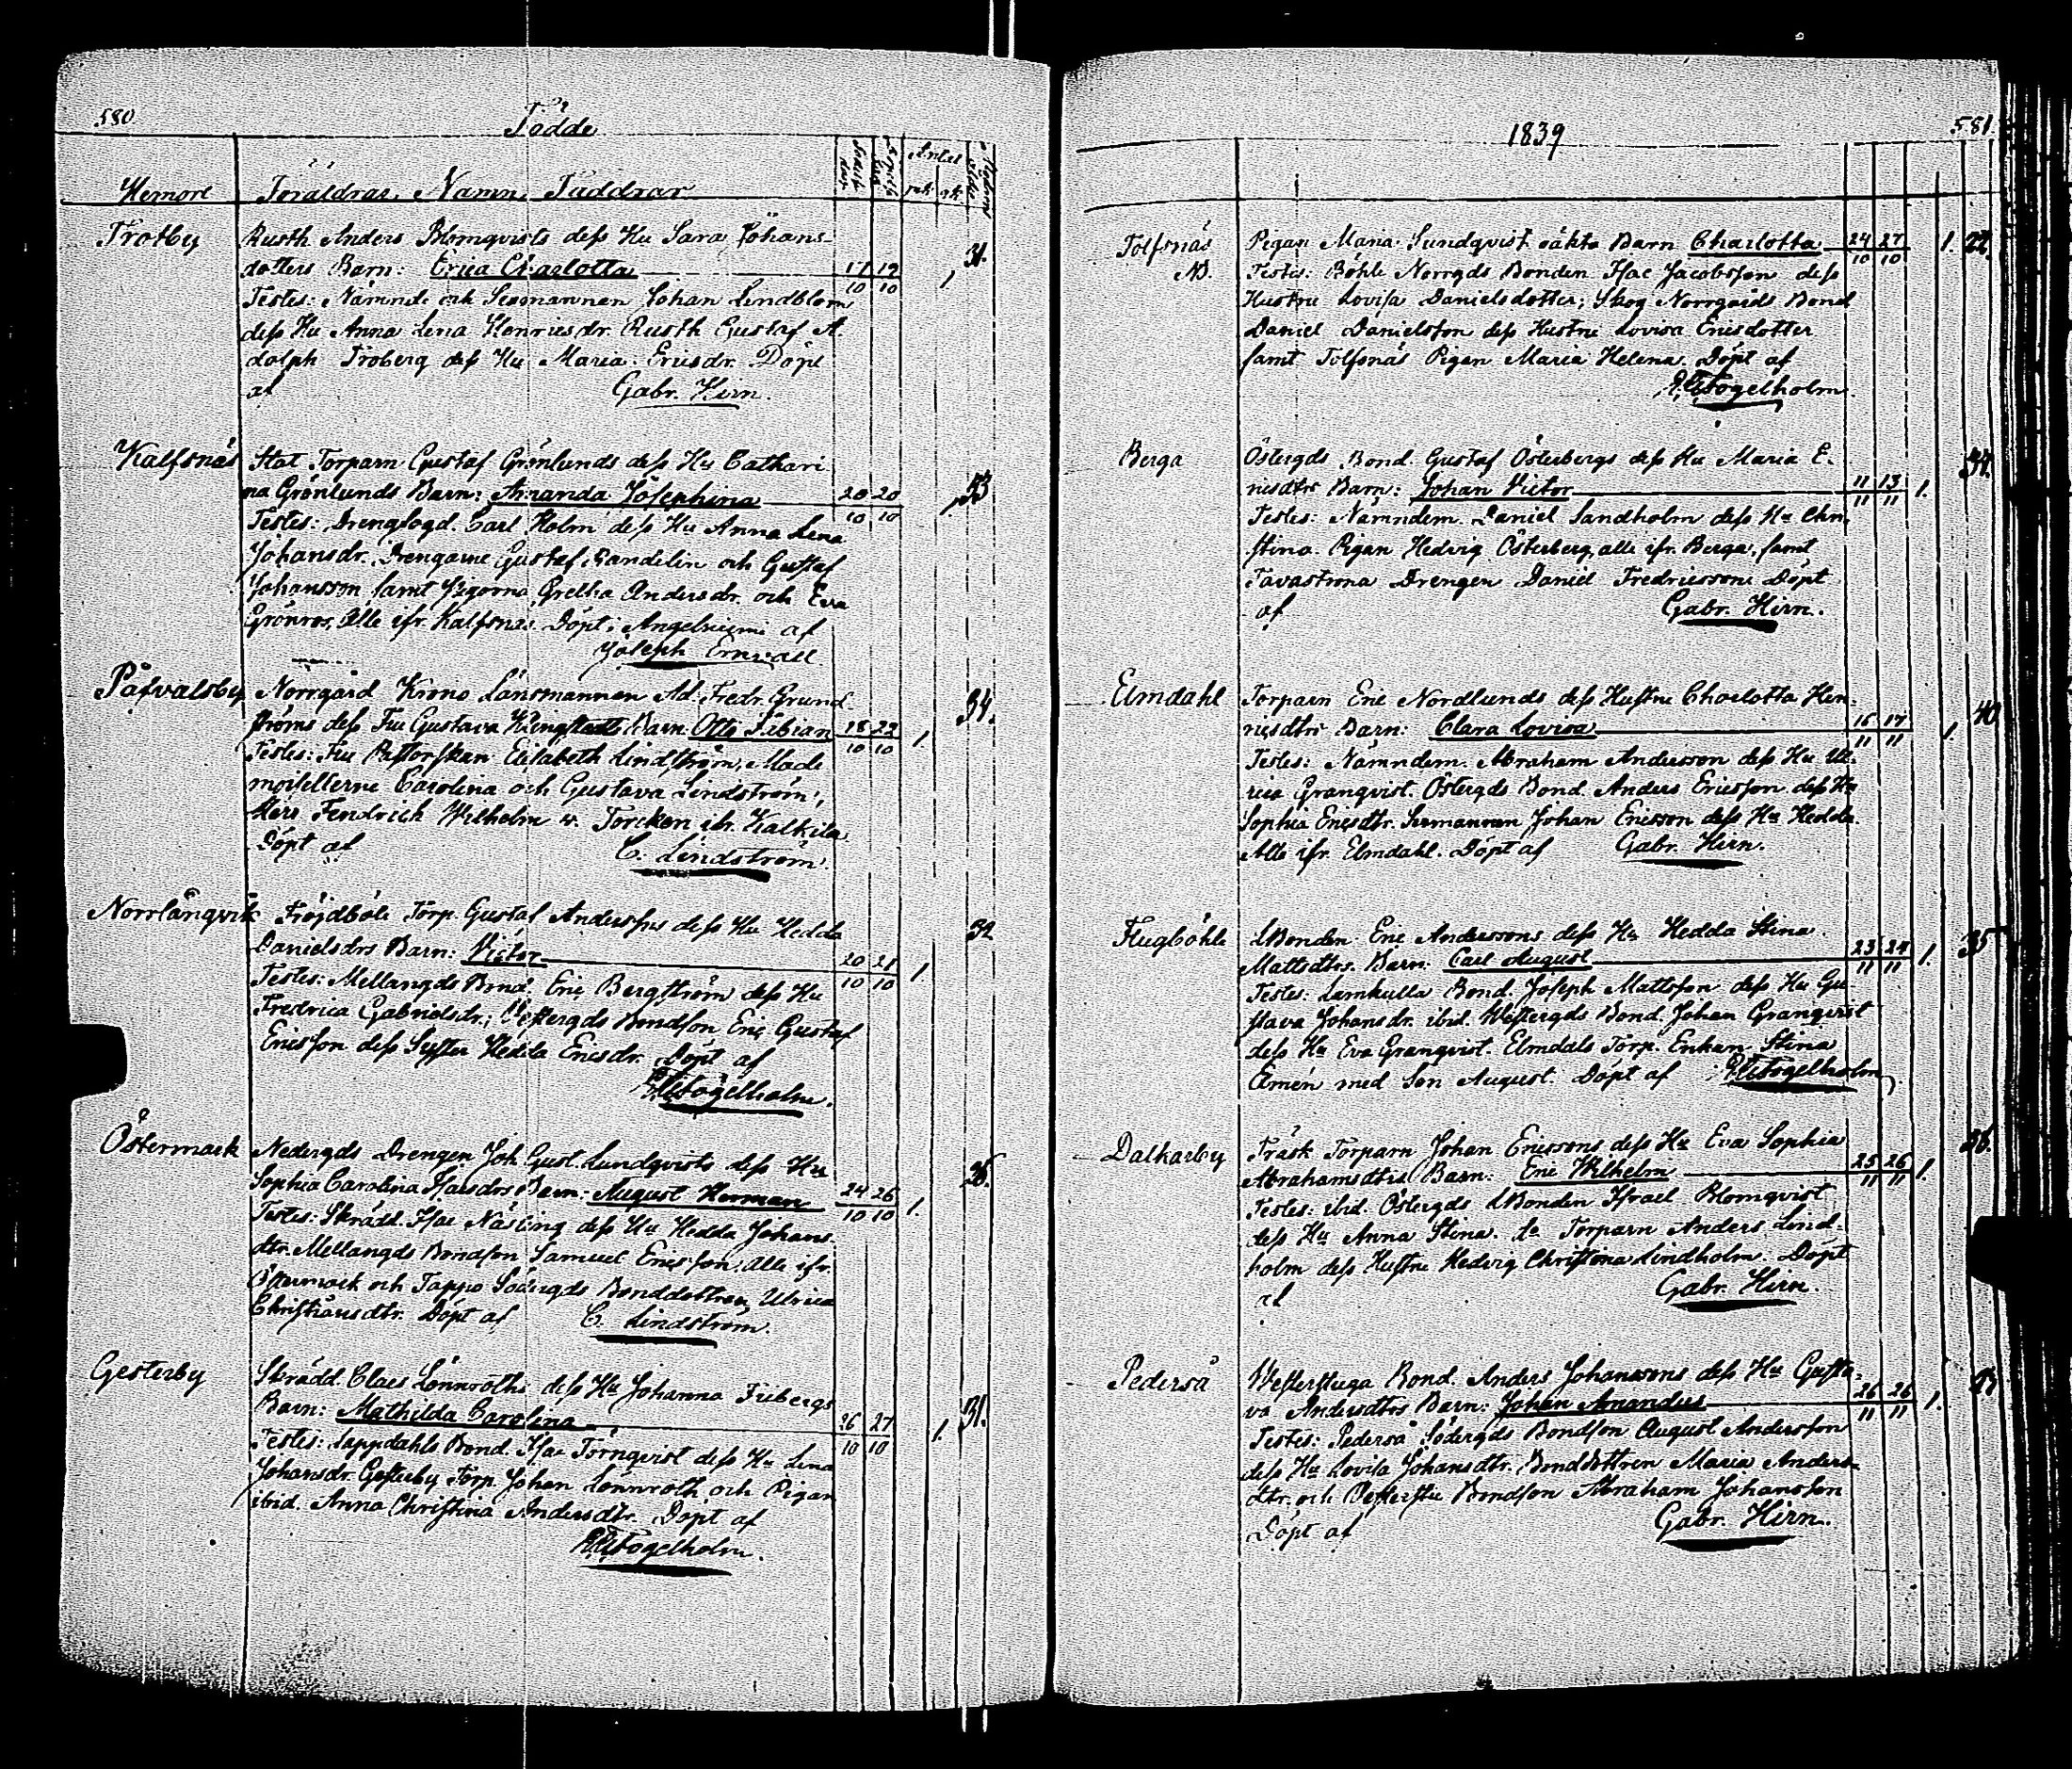 580
Födde
Hemort Föräldrar, Namn, Faddrar
Froeby Rusth Anders Blomqvists dess Hu Sara Johans-
dotters Barn: Erica Charlotta 17/10 19/10 1 31.
Testes: Nämnd. och Sexmannen Johan Lindblom
dess Hu Anna Lena Henricsdr. Rusth Gustaf A
dolph Froberg dess Hu Maria Ericsdr. Döpt
af Gabr. Hirn.
Kalfsnäs Stat Torparn Gustaf Grönlunds dess Hu Cathari
na Grönlunds Barn: Amanda Josephina 20/10 20/10 1 33
Testes: Drengfogd. Carl Holm dess Hu Anna Lena
Johansdr. Drengarne Gustaf Sandelin och Gustaf
Johansson samt Pigorna Gretha Andersdr. och Eva
Grönros, Alle ifr. Kalfsnäs. Döpt i Angelniemi af
Joseph Ernvall.
Påfvalsby Norrgård Krono Länsmannen Ad. Fredr. Grund
ströms dess Fru Gustava Barn: Otto Fabian 18/10 22/10 1. 34.
Testes: Fru Pastorskan Elisabeth Lindström, Made
moisellerne Carolina och Gustava Lindström,
Herr Fendrich Wilhelm v. Torcken ifr. Kalkila
Döpt af C. Lindström.
Norrlångvik Fröjdböle Torp. Gustaf Anderssons dess Hu Hedda
Danielsdrs Barn: Victor 20/10 21/10 1. 32
Testes: Mellangds Bond. Eric Bergström dess Hu
Fredrica Gabrielsdr.; Vestergds Bondson Eric Gustaf
Ericsson dess Syster Hedda Ericsdr. Döpt af
Fogelholm.
Östermark Nedergds Drengen Joh. Gust. Lundqvists dess Hu
Sophia Carolina Isacsdrs Barn: August Herman 24/10 26/10 1. 25.
Testes: Skrädd. Isac Näsling dess Hu Hedda Johans
dtr. Mellangds Bondson Samuel Ericsson, Alle ifr.
Östermark och Tappo Södergds Bonddottren Ulrica
Christiansdtr. Döpt af C. Lindström.
Gesterby Skrädd. Claes Lönnroths dess Hu Johanna Fribergs
Barn: Mathilda Carolina 26/10 27/10 1. 31.
Testes: Lappdahls Bond. Isac Törnqvist dess Hu Lena
Johansdr. Gesterby Torp. Johan Lönnroth och Pigan
ibid. Anna Christina Andersdtr. Döpt af
Fogelholm.
1839
581.
Tolfsnäs Pigan Maria Sundqvist oäkta Barn Charlotta 24/10 27/10 1. 22.
Testes: Böhle Norrgds Bonden Isac Jacobsson dess
Hustru Lovisa Danielsdotter; Skog Norrgårds Bond
Daniel Danielsson dess Hustru Lovisa Ericsdotter
samt Tolfsnäs Pigan Maria Helena. Döpt af
Fogelholm.
Berga Östergds Bond. Gustaf Österbergs dess Hu Maria E-
ricsdtrs Barn: Johan Victor 11/11 13/11 1. 34.
Testes: Nämndem. Daniel Sandholm dess Hu Chri
stina. Pigan Hedvig Österberg, alle ifr. Berga, samt
Tavastrona Drengen Daniel Fredricsson. Döpt
af Gabr. Hirn.
Elmdahl Torparn Eric Nordlunds dess Hustru Charlotta Hen-
ricsdtrs Barn: Clara Lovisa 15/11 17/11 1. 40
Testes: Nämndem. Abraham Andersson dess Hu Ul-
rica Granqvist. Östergds Bond. Anders Ericsson dess Hu
Sophia Ericsdtr. Sexmannen Johan Ericsson dess Hu Hedda
Alle ifr. Elmdahl. Döpt af Gabr. Hirn.
Flugböhle LBonden Eric Anderssons dess Hu Hedda Stina
Mattsdtrs. Barn: Carl August 23/11 24/11 1. 35
Testes: Lamkulla Bond. Joseph Mattsson dess Hu Gu
stava Johansdr. ibid. Westergds Bond. Johan Granqvist
dess Hu Eva Granqvist. Elmdals Torp. Enkan Stina
Amén med Son August. Döpt af Fogelholm
Dalkarby Träsk Torparn Johan Ericssons dess Hu Eva Sophia
Abrahamsdtrs Barn: Eric Wilhelm 25/11 26/11 1. 36.
Testes: ibid. Östergds LBonden Israel Blomqvist
dess Hu Anna Stina. to Torparn Anders Lind-
holm dess Hustru Hedvig Christina Lindholm. Döpt
af Gabr. Hirn.
Pederså Westerstuga Bond. Anders Johanssons dess Hu Gusta-
va Andersdtrs Barn: Johan Amandus 26/11 26/11 1.
Testes: Pederså Södergds Bondson August Andersson
dess Hu Lovisa Johansdtr. Bonddottren Maria Anders-
dtr. och Bondson Abraham Johansson
Döpt af Gabr. Hirn.